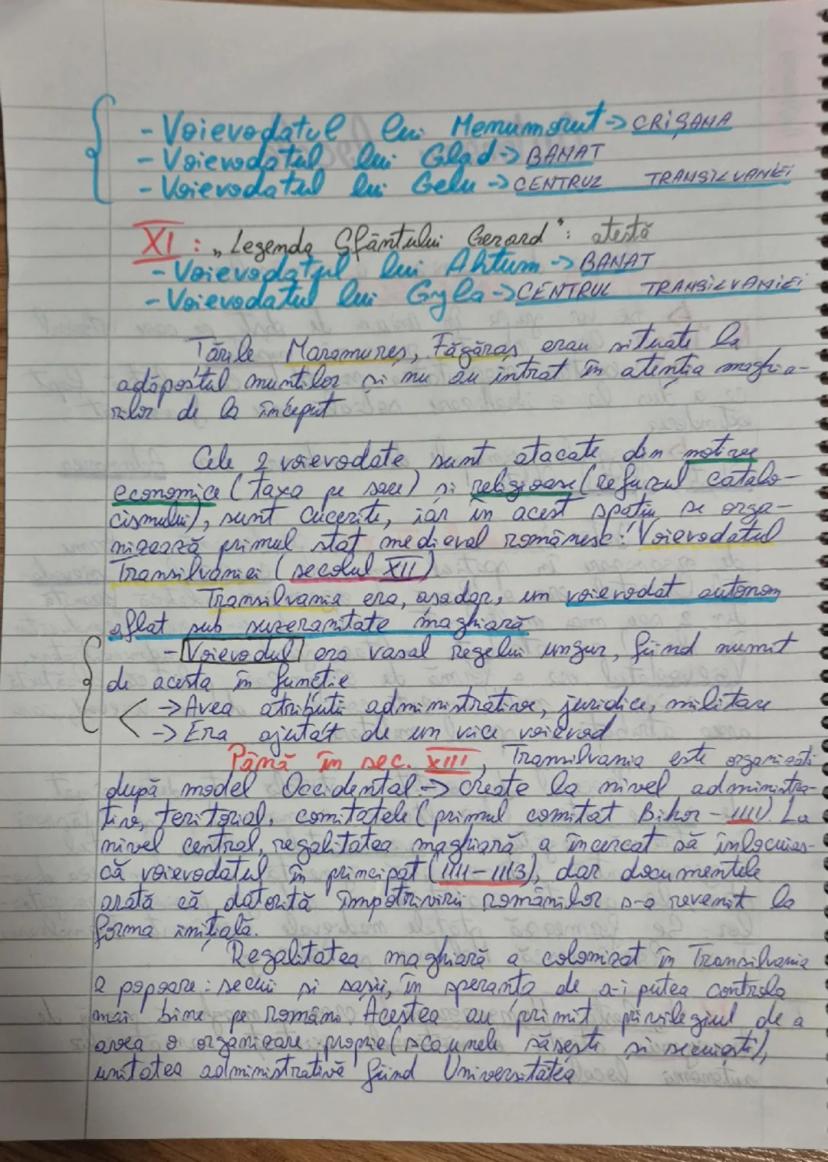 - Voievodatul lui Menumorut → CRIȘANA
- Voievodatul lui Glad → BANAT
- Voievodatul lui Gelu → CENTRUL TRANSILVANIEI
XI : „Legenda Sfântului Gerard": atestă
- Voievodatul lui Ahtum → BANAT
- Voievodatul lui Gyla → CENTRUL TRANSILVANIEI
Țările Maramureș, Făgăraș erau situate la
adăpostul munților și nu au intrat în atenția maghia-
rilor de la început
Cele 2 voievodate, sunt atacate din motive
economice (taxa pe sare) și religioase (refuzul catolo-
cismului), sunt cucerite, iar în acest spațiu se orga-
nizează primul stat medieval românesc: Voievodatul
Transilvaniei (secolul XII)
Transilvania era, așadar, un voievodat autonom
aflat sub suzeranitate maghiară
- Voievodul era vasal regelui ungur, fiind numit
de acesta în funcție
→ Avea atribuții administrative, juridice, militare
→ Era ajutat de un vice voievod
Până în sec. XIII, Transilvania este organizată
după model Occidental → create la nivel administra-
tiv, teritorial, comitatele (primul comitat Bihor - 1111) La
nivel central, regalitatea maghiară a încercat să înlocuias-
că voievodatul în principat (1111-1113), dar documentele
arată că datorită împotrivirii românilor s-a revenit la
forma inițială.
Regalitatea maghiară a colonizat în Transilvania
2 popoare: secui și sași, în speranța de a-i putea controla
mai bine pe români. Acestea au primit privilegiul de a
avea o organizare proprie (scaunele săsești și secuiești),
unitatea administrativă fiind Universitatea